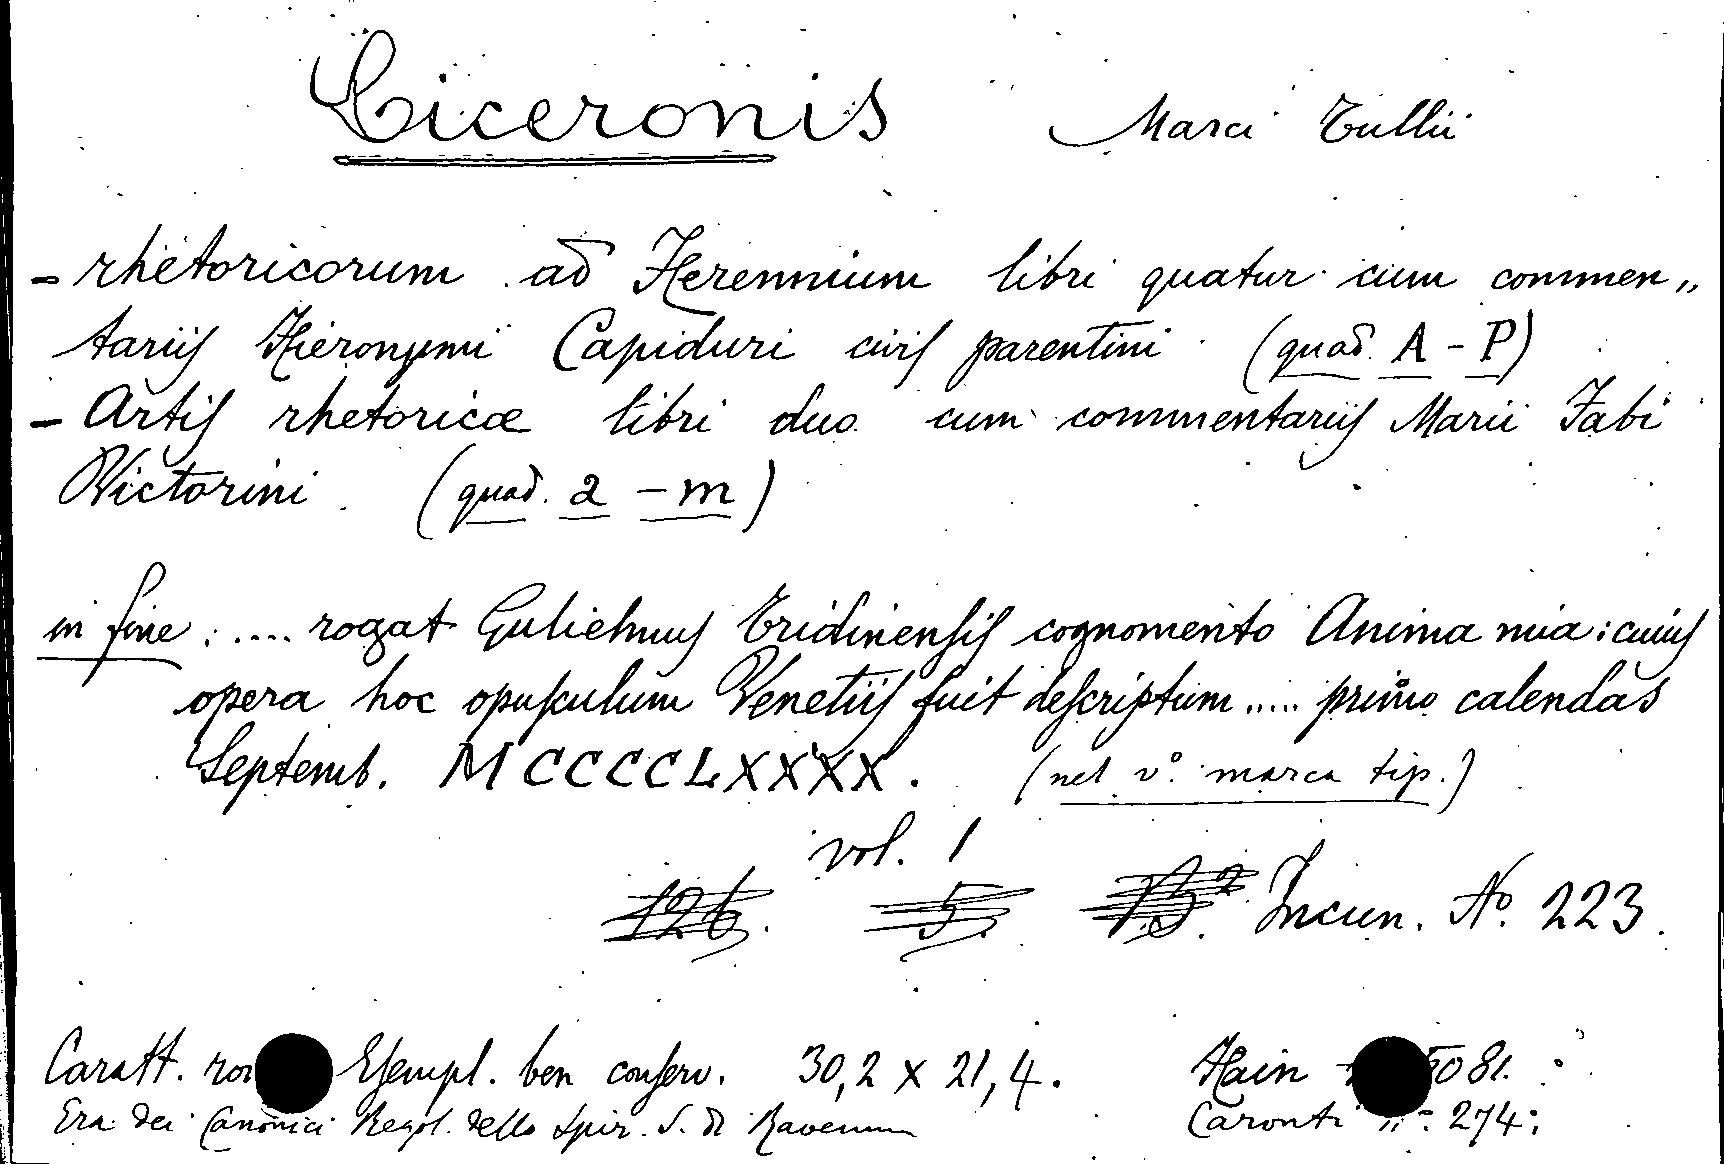 Ciceronis Marci Tullii
- rhetoricorum ad Herennium libri quatur cum commen„
tariis Hieronymi Capiduri civis parentini (quad. A - P)
- Artis rhetoricæ libri duo cum commentariis Marii Fabi
Victorini (quad. a - m)
in fine: .... rogat Gulielmus Tridinensis cognomento Anima mia: cuius
opera hoc opusculum Venetiis fuit descriptum ..... primo calendas
Septemb. MCCCCLXXXX. (nel vº. marca tip.)
vol. 1
126. 5. Incun. Nº. 223.
Caratt. Esempl. ben conserv. 30,2 x 21,4. Hain 5081.
Era dei Canonici Regol. dello Spir. S. di Ravenna Caronti „: 274: